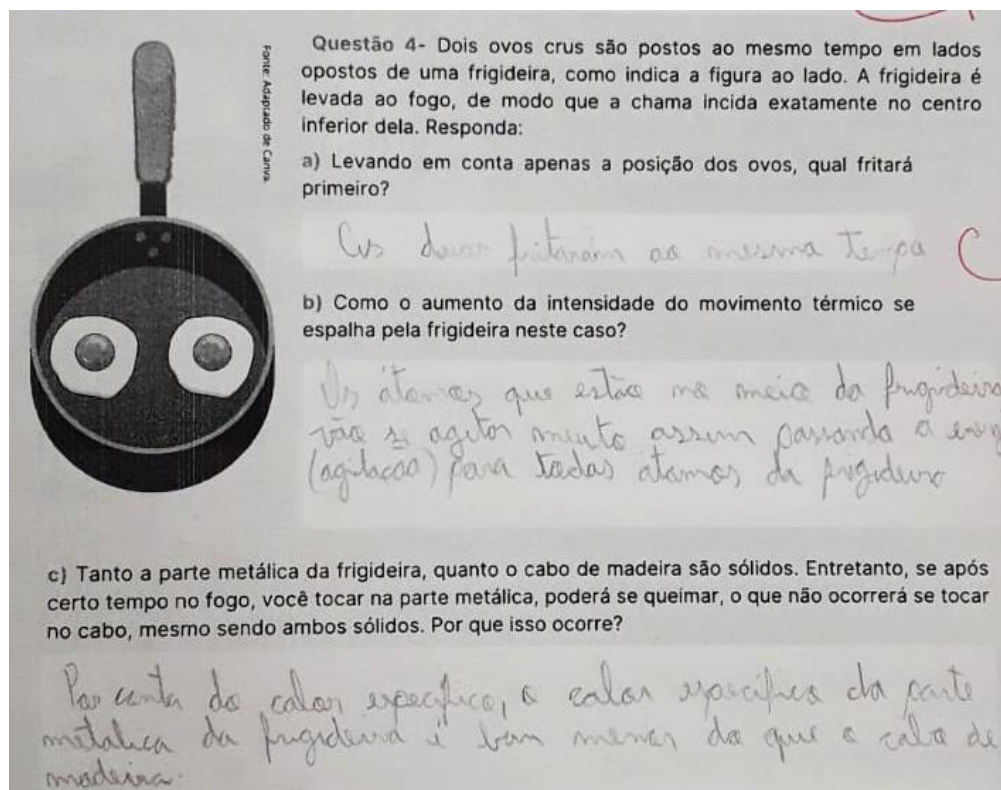 Questão 4- Dois ovos crus são postos ao mesmo tempo em lados
opostos de uma frigideira, como indica a figura ao lado. A frigideira é
levada ao fogo, de modo que a chama incida exatamente no centro
inferior dela. Responda:
Fonte: Adaptado de Canva.
a) Levando em conta apenas a posição dos ovos, qual fritará
primeiro?
Os dois fritaram ao mesmo tempo
b) Como o aumento da intensidade do movimento térmico se
espalha pela frigideira neste caso?
Os átomos que estão no meio da frigideira
vão se agitar muito assim passando a
(agitação) para todos atomos da frigideira
c) Tanto a parte metálica da frigideira, quanto o cabo de madeira são sólidos. Entretanto, se após
certo tempo no fogo, você tocar na parte metálica, poderá se queimar, o que não ocorrerá se tocar
no cabo, mesmo sendo ambos sólidos. Por que isso ocorre?
Por conta do calor especifico, o calor especifico da parte
metalica da frigideira é bem menor do que o cabo de
madeira.